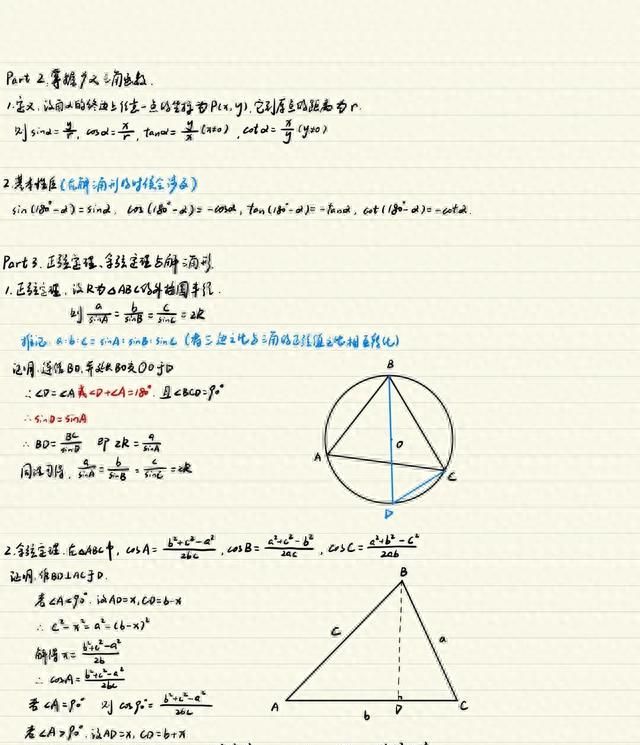 Part 2. 掌握广义三角函数.
1.定义.设角α的终边上任意一点的坐标为P(x,y).它到原点的距离为r.
则 sinα=y/r, cosα=x/r, tanα=y/x (x≠0), cotα=x/y (y≠0)
2.基本性质(在解三角形的时候会涉及)
sin(180°-α)=sinα, cos(180°-α)=-cosα, tan(180°-α)=-tanα, cot(180°-α)=-cotα.
Part 3. 正弦定理、余弦定理与解三角形
1.正弦定理.设R为△ABC的外接圆半径.
则 a/sinA = b/sinB = c/sinC = 2R
推论: a:b:c=sinA:sinB:sinC (者三边之比与三角的正弦值之比相互转化)
证明.连结BO,并延长BO交⊙O于D
∴∠D=∠A或∠D+∠A=180°.且∠BCD=90°
∴sinD=sinA
∴BD=BC/sinD 即2R=a/sinA
同理可得, a/sinA = b/sinB = c/sinC = 2R
B
O
A
C
D
2.余弦定理.在△ABC中, cosA=(b²+c²-a²)/2bc, cosB=(a²+c²-b²)/2ac, cosC=(a²+b²-c²)/2ab
证明.作BD⊥AC于D.
若∠A<90°.设AD=x,CD=b-x
∴c²-x²=a²-(b-x)²
解得x=(b²+c²-a²)/2b
∴cosA=(b²+c²-a²)/2bc
若∠A=90° 则 cos90°=(b²+c²-a²)/2bc
若∠A>90°.设AD=x,CD=b+x
B
c
a
A
b
D
C